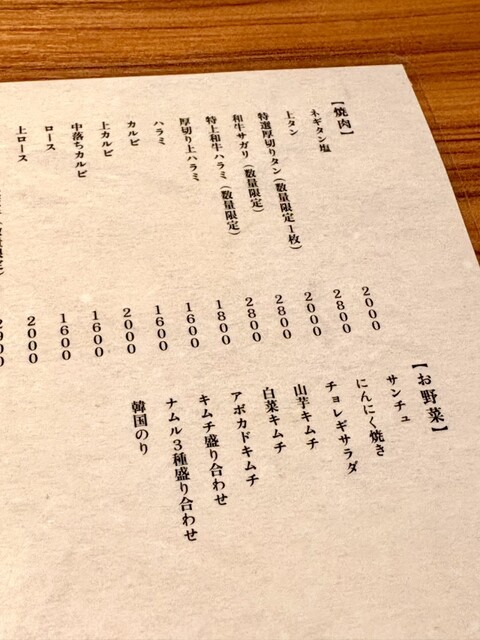 【焼肉】
ネギタン塩 2000
上タン 2800
特選厚切りタン(数量限定1枚) 2000
和牛サガリ(数量限定) 2800
特上和牛ハラミ(数量限定) 2800
厚切り上ハラミ 1800
ハラミ 1600
カルビ 1600
上カルビ 2000
中落ちカルビ 1600
ロース 1600
上ロース 2000
(数量限定) 2900
【お野菜】
サンチュ
にんにく焼き
チョレギサラダ
山芋キムチ
白菜キムチ
アボカドキムチ
キムチ盛り合わせ
ナムル3種盛り合わせ
韓国のり